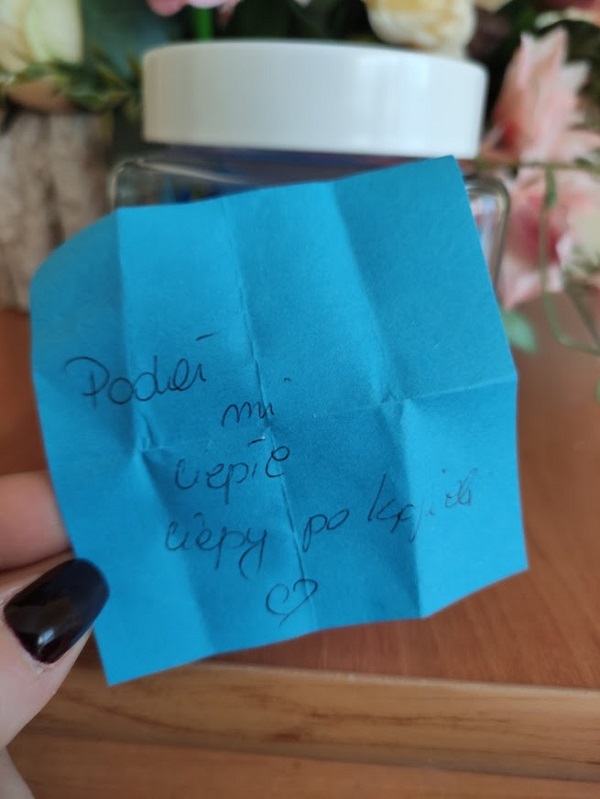 Podaj
mi
ciepłe
ciepy po kąpieli
♡